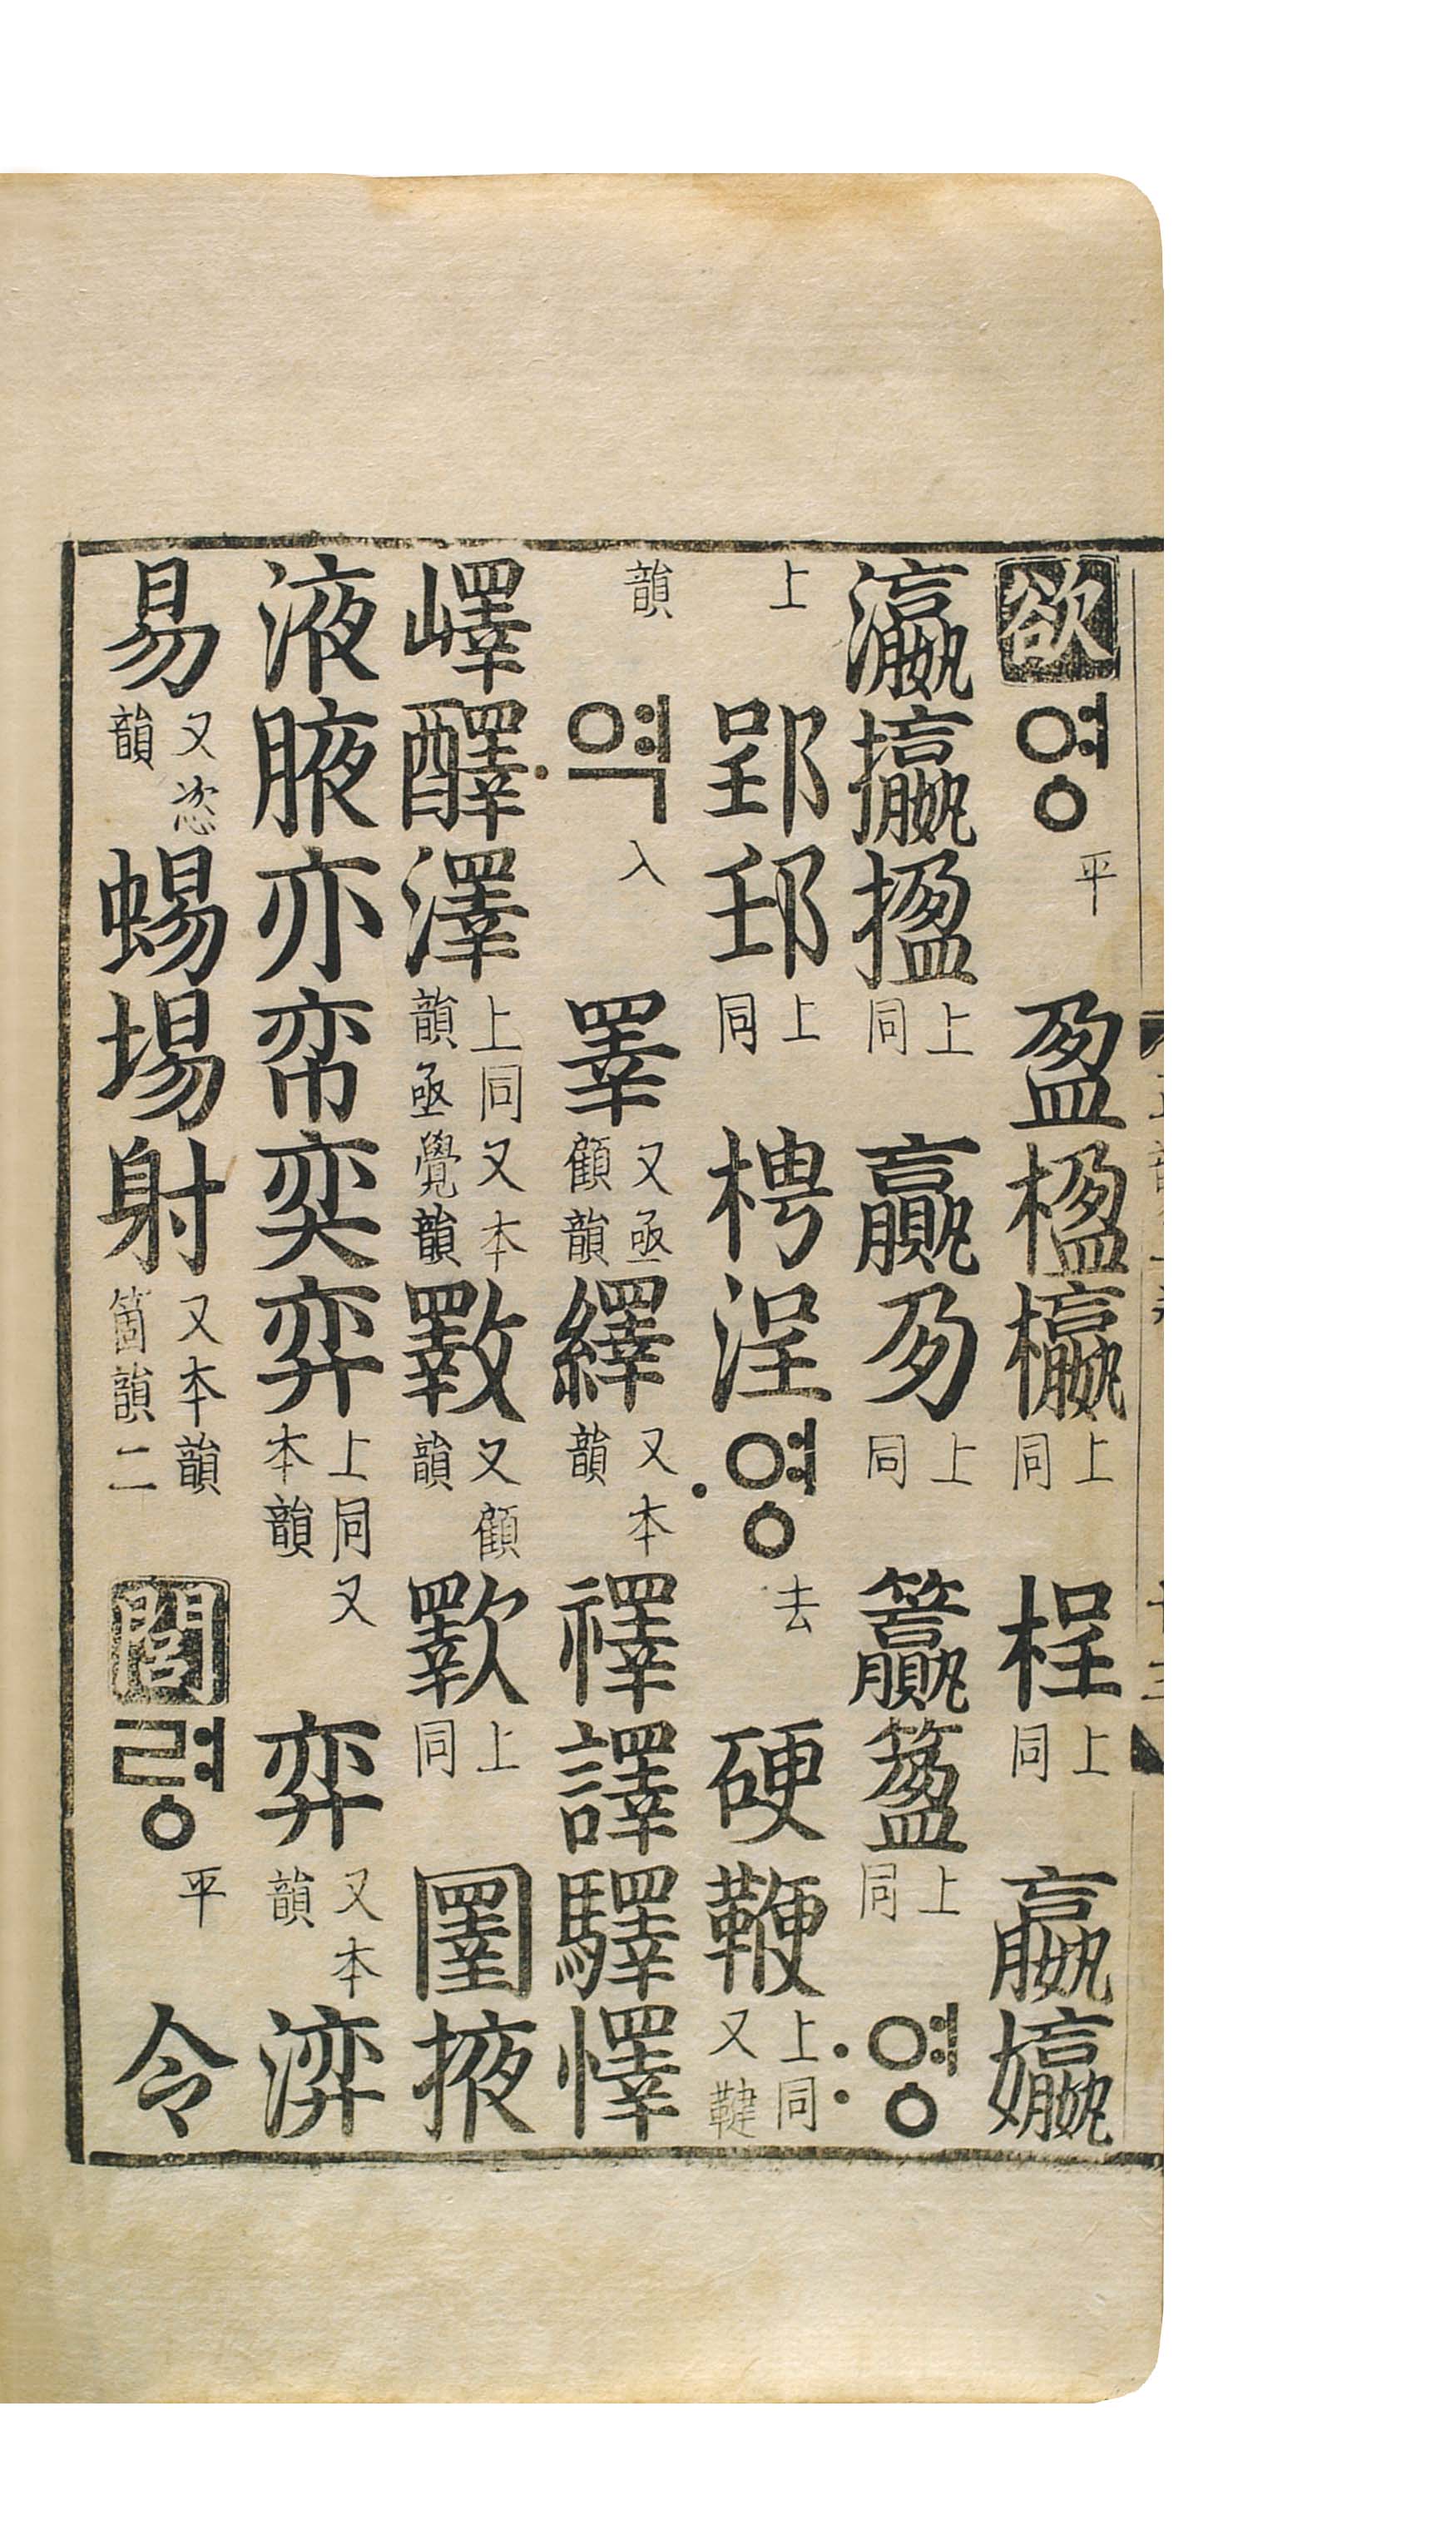 欲 영 平 盈 楹 上同 桯 上同 嬴 孆
瀛 攍 㨕 上同 贏 夃 上同 籯 上同 〯영
上 郢 上同 梬 浧 〮영 去 硬 鞕 上同又鞬
韻 〮역 入 睪 又亟顧韻 繹 又本韻 譯 驛 懌
嶧 醳 澤 上同又本韻亟覺韻 斁 又顧韻 上同 圛 掖
液 腋 亦 帟 奕 弈 上同又本韻 弈 又本韻
易 又恣韻 蜴 埸 射 又本韻箇韻二 閭 령 平 令